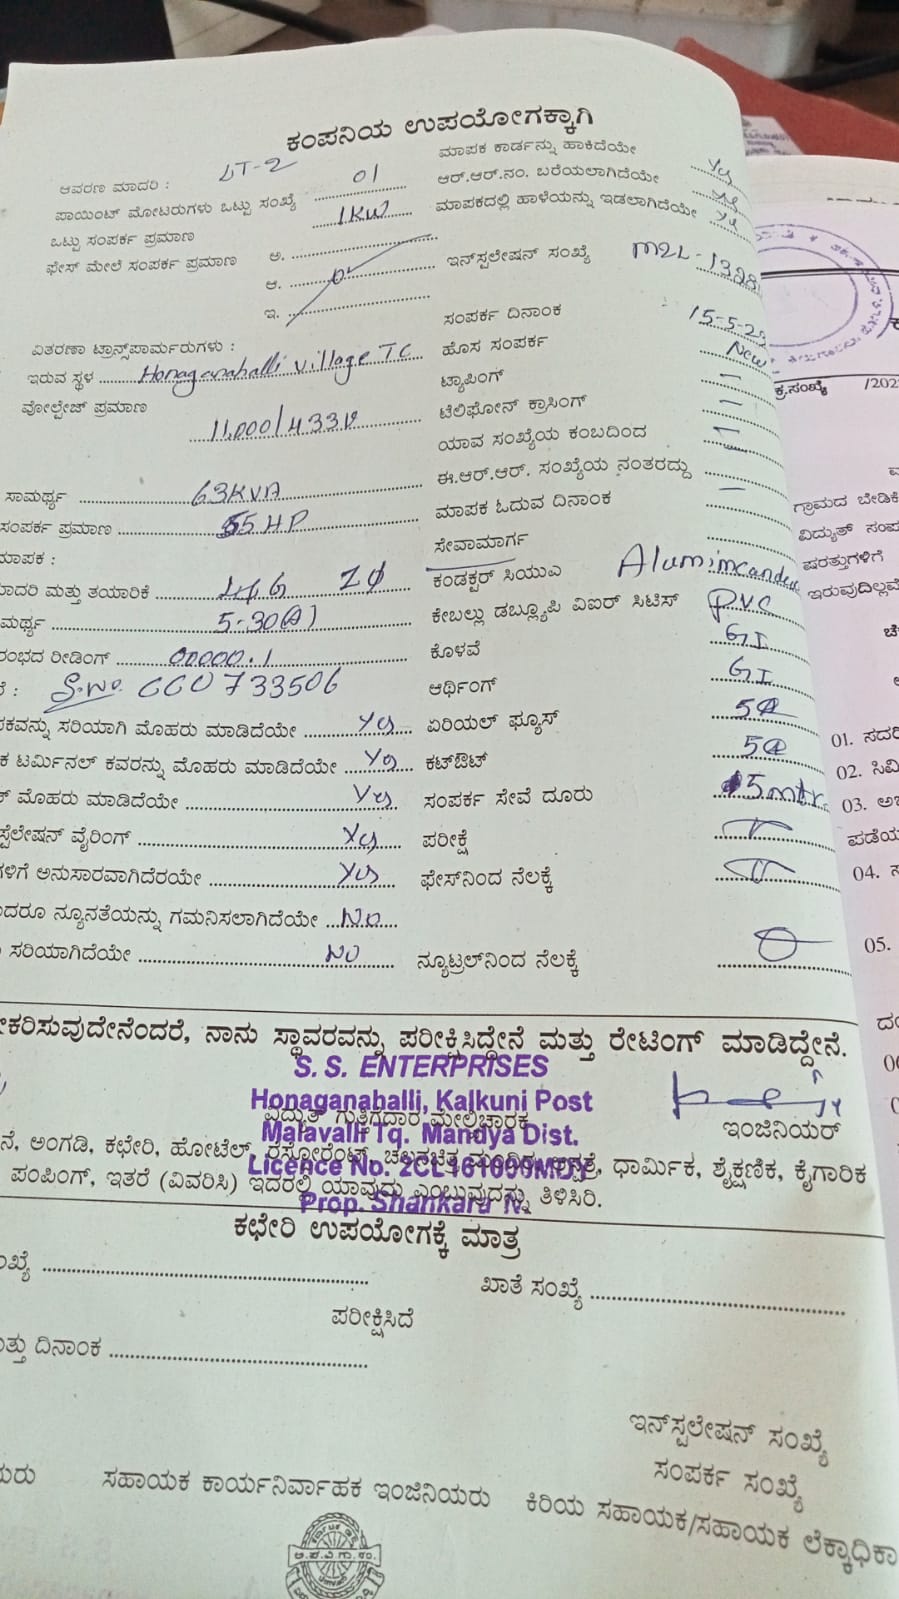 ಕಂಪನಿಯ ಉಪಯೋಗಕ್ಕಾಗಿ
ಆವರಣ ಮಾದರಿ : LT-2
ಮಾಪಕ ಕಾರ್ಡನ್ನು ಹಾಕಿದೆಯೇ Yes
ಪಾಯಿಂಟ್ ಮೋಟರುಗಳು ಒಟ್ಟು ಸಂಖ್ಯೆ 01
ಆರ್.ಆರ್.ನಂ. ಬರೆಯಲಾಗಿದೆಯೇ
ಒಟ್ಟು ಸಂಪರ್ಕ ಪ್ರಮಾಣ 1KW
ಮಾಪಕದಲ್ಲಿ ಹಾಳೆಯನ್ನು ಇಡಲಾಗಿದೆಯೇ
ಫೇಸ್ ಮೇಲೆ ಸಂಪರ್ಕ ಪ್ರಮಾಣ ಅ.
ಇನ್‌ಸ್ಪಲೇಷನ್ ಸಂಖ್ಯೆ
ಆ.
ಇ.
ಸಂಪರ್ಕ ದಿನಾಂಕ
ವಿತರಣಾ ಟ್ರಾನ್ಸ್‌ಪಾರ್ಮರುಗಳು :
ಹೊಸ ಸಂಪರ್ಕ New
ಇರುವ ಸ್ಥಳ Honaganahalli village TC
ಟ್ಯಾಪಿಂಗ್ –
ವೋಲ್ಟೇಜ್ ಪ್ರಮಾಣ 11,000/433V
ಟೆಲಿಫೋನ್ ಕ್ರಾಸಿಂಗ್ –
ಯಾವ ಸಂಖ್ಯೆಯ ಕಂಬದಿಂದ
ಸಾಮರ್ಥ್ಯ 63KVA
ಈ.ಆರ್.ಆರ್. ಸಂಖ್ಯೆಯ ನಂತರದ್ದು
ಸಂಪರ್ಕ ಪ್ರಮಾಣ 55 HP
ಮಾಪಕ ಓದುವ ದಿನಾಂಕ –
ಮಾಪಕ :
ಸೇವಾಮಾರ್ಗ
ಮಾದರಿ ಮತ್ತು ತಯಾರಿಕೆ
ಕಂಡಕ್ಟರ್ ಸಿಯುಎ
5-30(A)
ಕೇಬಲ್ಲು ಡಬ್ಲ್ಯೂಪಿ ವಿಐರ್ ಸಿಟಿಸ್ PVC
ರಂಭದ ರೀಡಿಂಗ್ 00000.1
ಕೊಳವೆ GI
S.No. CCU733506
ಆರ್ಥಿಂಗ್ GI
ಕವನ್ನು ಸರಿಯಾಗಿ ಮೊಹರು ಮಾಡಿದೆಯೇ Yes
ಏರಿಯಲ್ ಫ್ಯೂಸ್ 5A
ಕ ಟರ್ಮಿನಲ್ ಕವರನ್ನು ಮೊಹರು ಮಾಡಿದೆಯೇ Yes
ಕಟ್‌ಔಟ್ 5A
ಮೊಹರು ಮಾಡಿದೆಯೇ Yes
ಸಂಪರ್ಕ ಸೇವೆ ದೂರು 5mtr
ಸ್ಟೆಲೇಷನ್ ವೈರಿಂಗ್ Yes
ಪರೀಕ್ಷೆ
ಗಳಿಗೆ ಅನುಸಾರವಾಗಿದೆರಯೇ Yes
ಫೇಸ್‌ನಿಂದ ನೆಲಕ್ಕೆ
ದರೂ ನ್ಯೂನತೆಯನ್ನು ಗಮನಿಸಲಾಗಿದೆಯೇ No
ಸರಿಯಾಗಿದೆಯೇ NO
ನ್ಯೂಟ್ರಲ್‌ನಿಂದ ನೆಲಕ್ಕೆ
ಕರಿಸುವುದೇನೆಂದರೆ, ನಾನು ಸ್ಥಾವರವನ್ನು ಪರೀಕ್ಷಿಸಿದ್ದೇನೆ ಮತ್ತು ರೇಟಿಂಗ್ ಮಾಡಿದ್ದೇನೆ.
S. S. ENTERPRISES
Honaganahalli, Kalkuni Post
ವಿದ್ಯುತ್ ಗುತ್ತಿಗೆದಾರ ಮೇಲ್ವಿಚಾರಕ
ಇಂಜಿನಿಯರ್
Malavalli Tq. Mandya Dist.
ನೆ, ಅಂಗಡಿ, ಕಛೇರಿ, ಹೋಟೆಲ್, ರೆಸ್ಟೋರೆಂಟ್, ಚಲನಚಿತ್ರ ಧಾರ್ಮಿಕ, ಶೈಕ್ಷಣಿಕ, ಕೈಗಾರಿಕ
Licence No.
ಪಂಪಿಂಗ್, ಇತರೆ (ವಿವರಿಸಿ) ಇದರಲ್ಲಿ ಯಾವುದು ಎಂಬುವುದನ್ನು ತಿಳಿಸಿರಿ.
Prop. Shankara N.
ಕಛೇರಿ ಉಪಯೋಗಕ್ಕೆ ಮಾತ್ರ
ಖಾತೆ ಸಂಖ್ಯೆ
ಪರೀಕ್ಷಿಸಿದೆ
ದಿನಾಂಕ
ಇನ್‌ಸ್ಪಲೇಷನ್ ಸಂಖ್ಯೆ
ಸಂಪರ್ಕ ಸಂಖ್ಯೆ
ಸಹಾಯಕ ಕಾರ್ಯನಿರ್ವಾಹಕ ಇಂಜಿನಿಯರು
ಕಿರಿಯ ಸಹಾಯಕ/ಸಹಾಯಕ ಲೆಕ್ಕಾಧಿಕಾ
ಕ್ರ.ಸಂಖ್ಯೆ
ಗ್ರಾಮದ ಬೇಡಿಕೆ
ವಿದ್ಯುತ್ ಸಂಪ
ಷರತ್ತುಗಳಿಗೆ
ಇರುವುದಿಲ್ಲವೆ
01. ಸದರಿ
02. ಸಿವಿ
03.
ಪಡೆಯ
04.
05.